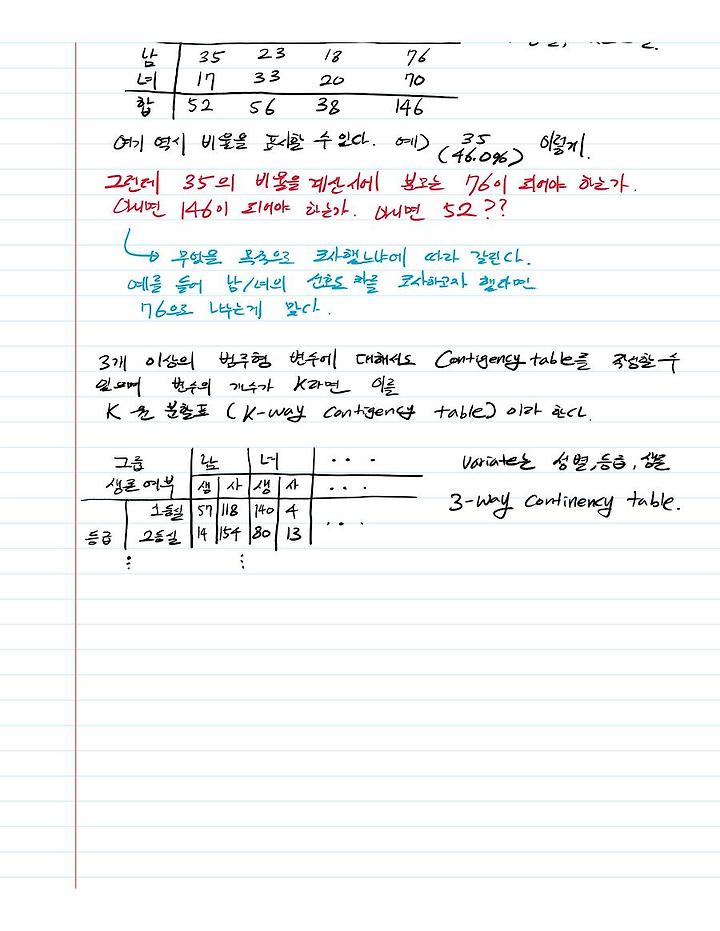 남 35 23 18 76
녀 17 33 20 70
합 52 56 38 146
여기 역시 비율을 표시할 수 있다. 예) 35 (46.0%) 이렇게.
그런데 35의 비율을 계산시에 분모는 76이 되어야 하는가.
아니면 146이 되어야 하는가. 아니면 52??
무엇을 목적으로 조사했느냐에 따라 갈린다.
예를 들어 남/녀의 선호도 차를 조사하고자 했다면
76으로 나누는게 맞다.
3개 이상의 범주형 변수에 대해서도 Contigency table를 작성할 수
있으며 변수의 개수가 K라면 이를
K원 분할표 (K-way contigency table) 이라 한다.
그룹 남 녀 ...
생존여부 생 사 생 사 ...
1등실 57 118 140 4
등급 2등실 14 154 80 13 ...
Variate는 성별, 등급, 생존
3-way continency table.